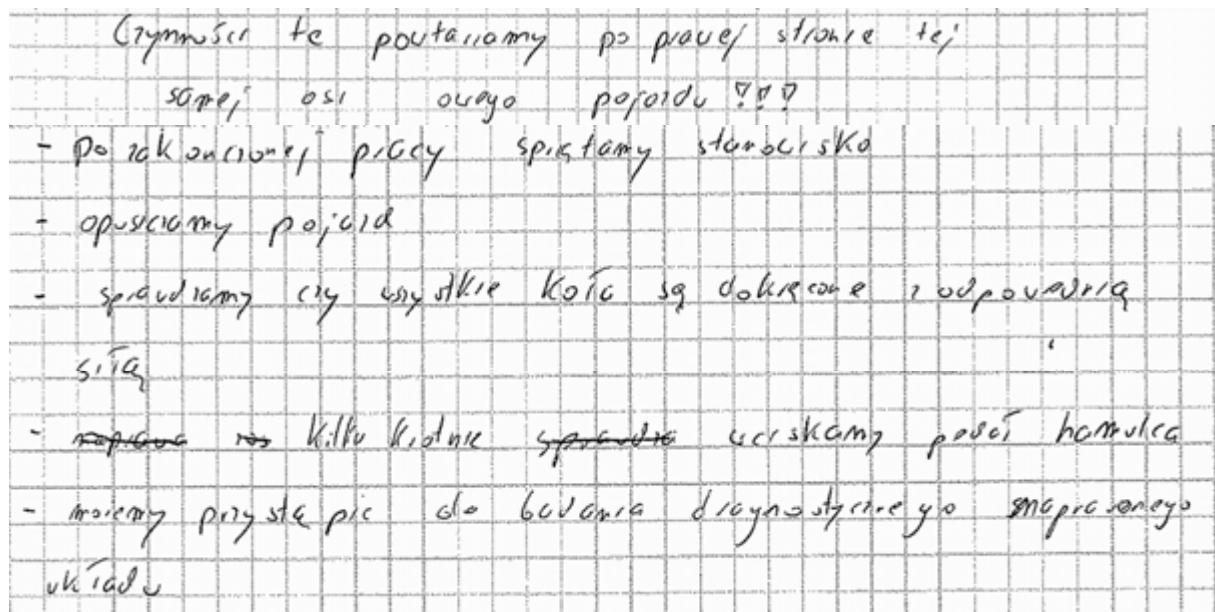 Czynności te powtarzamy po prawej stronie tej
samej osi owego pojazdu !!!
- Po zakończonej pracy sprzątamy stanowisko
- opuszczamy pojazd
- sprawdzamy czy wszystkie koła są dokręcone z odpowiednią
siłą
- naprawa kilku krotnie sprawdza uciskamy pedał hamulca
- możemy przystąpic do badania diagnostycznego naprawionego
układu